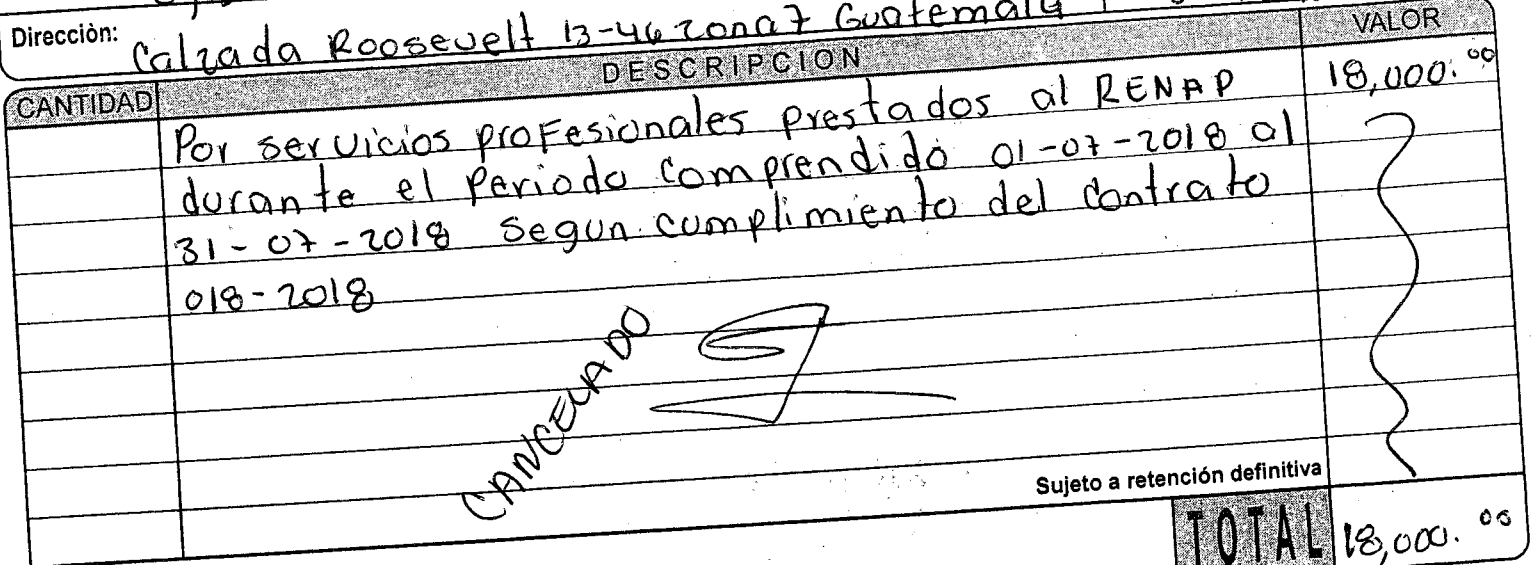 Dirección: Calzada Roosevelt 13-46 zona 7 Guatemala
CANTIDAD DESCRIPCION VALOR
Por servicios profesionales prestados al RENAP 18,000.00
durante el Periodo comprendido 01-07-2018 al
31-07-2018 Segun cumplimiento del contrato
018-2018
CANCELADO
Sujeto a retención definitiva
TOTAL 18,000.00